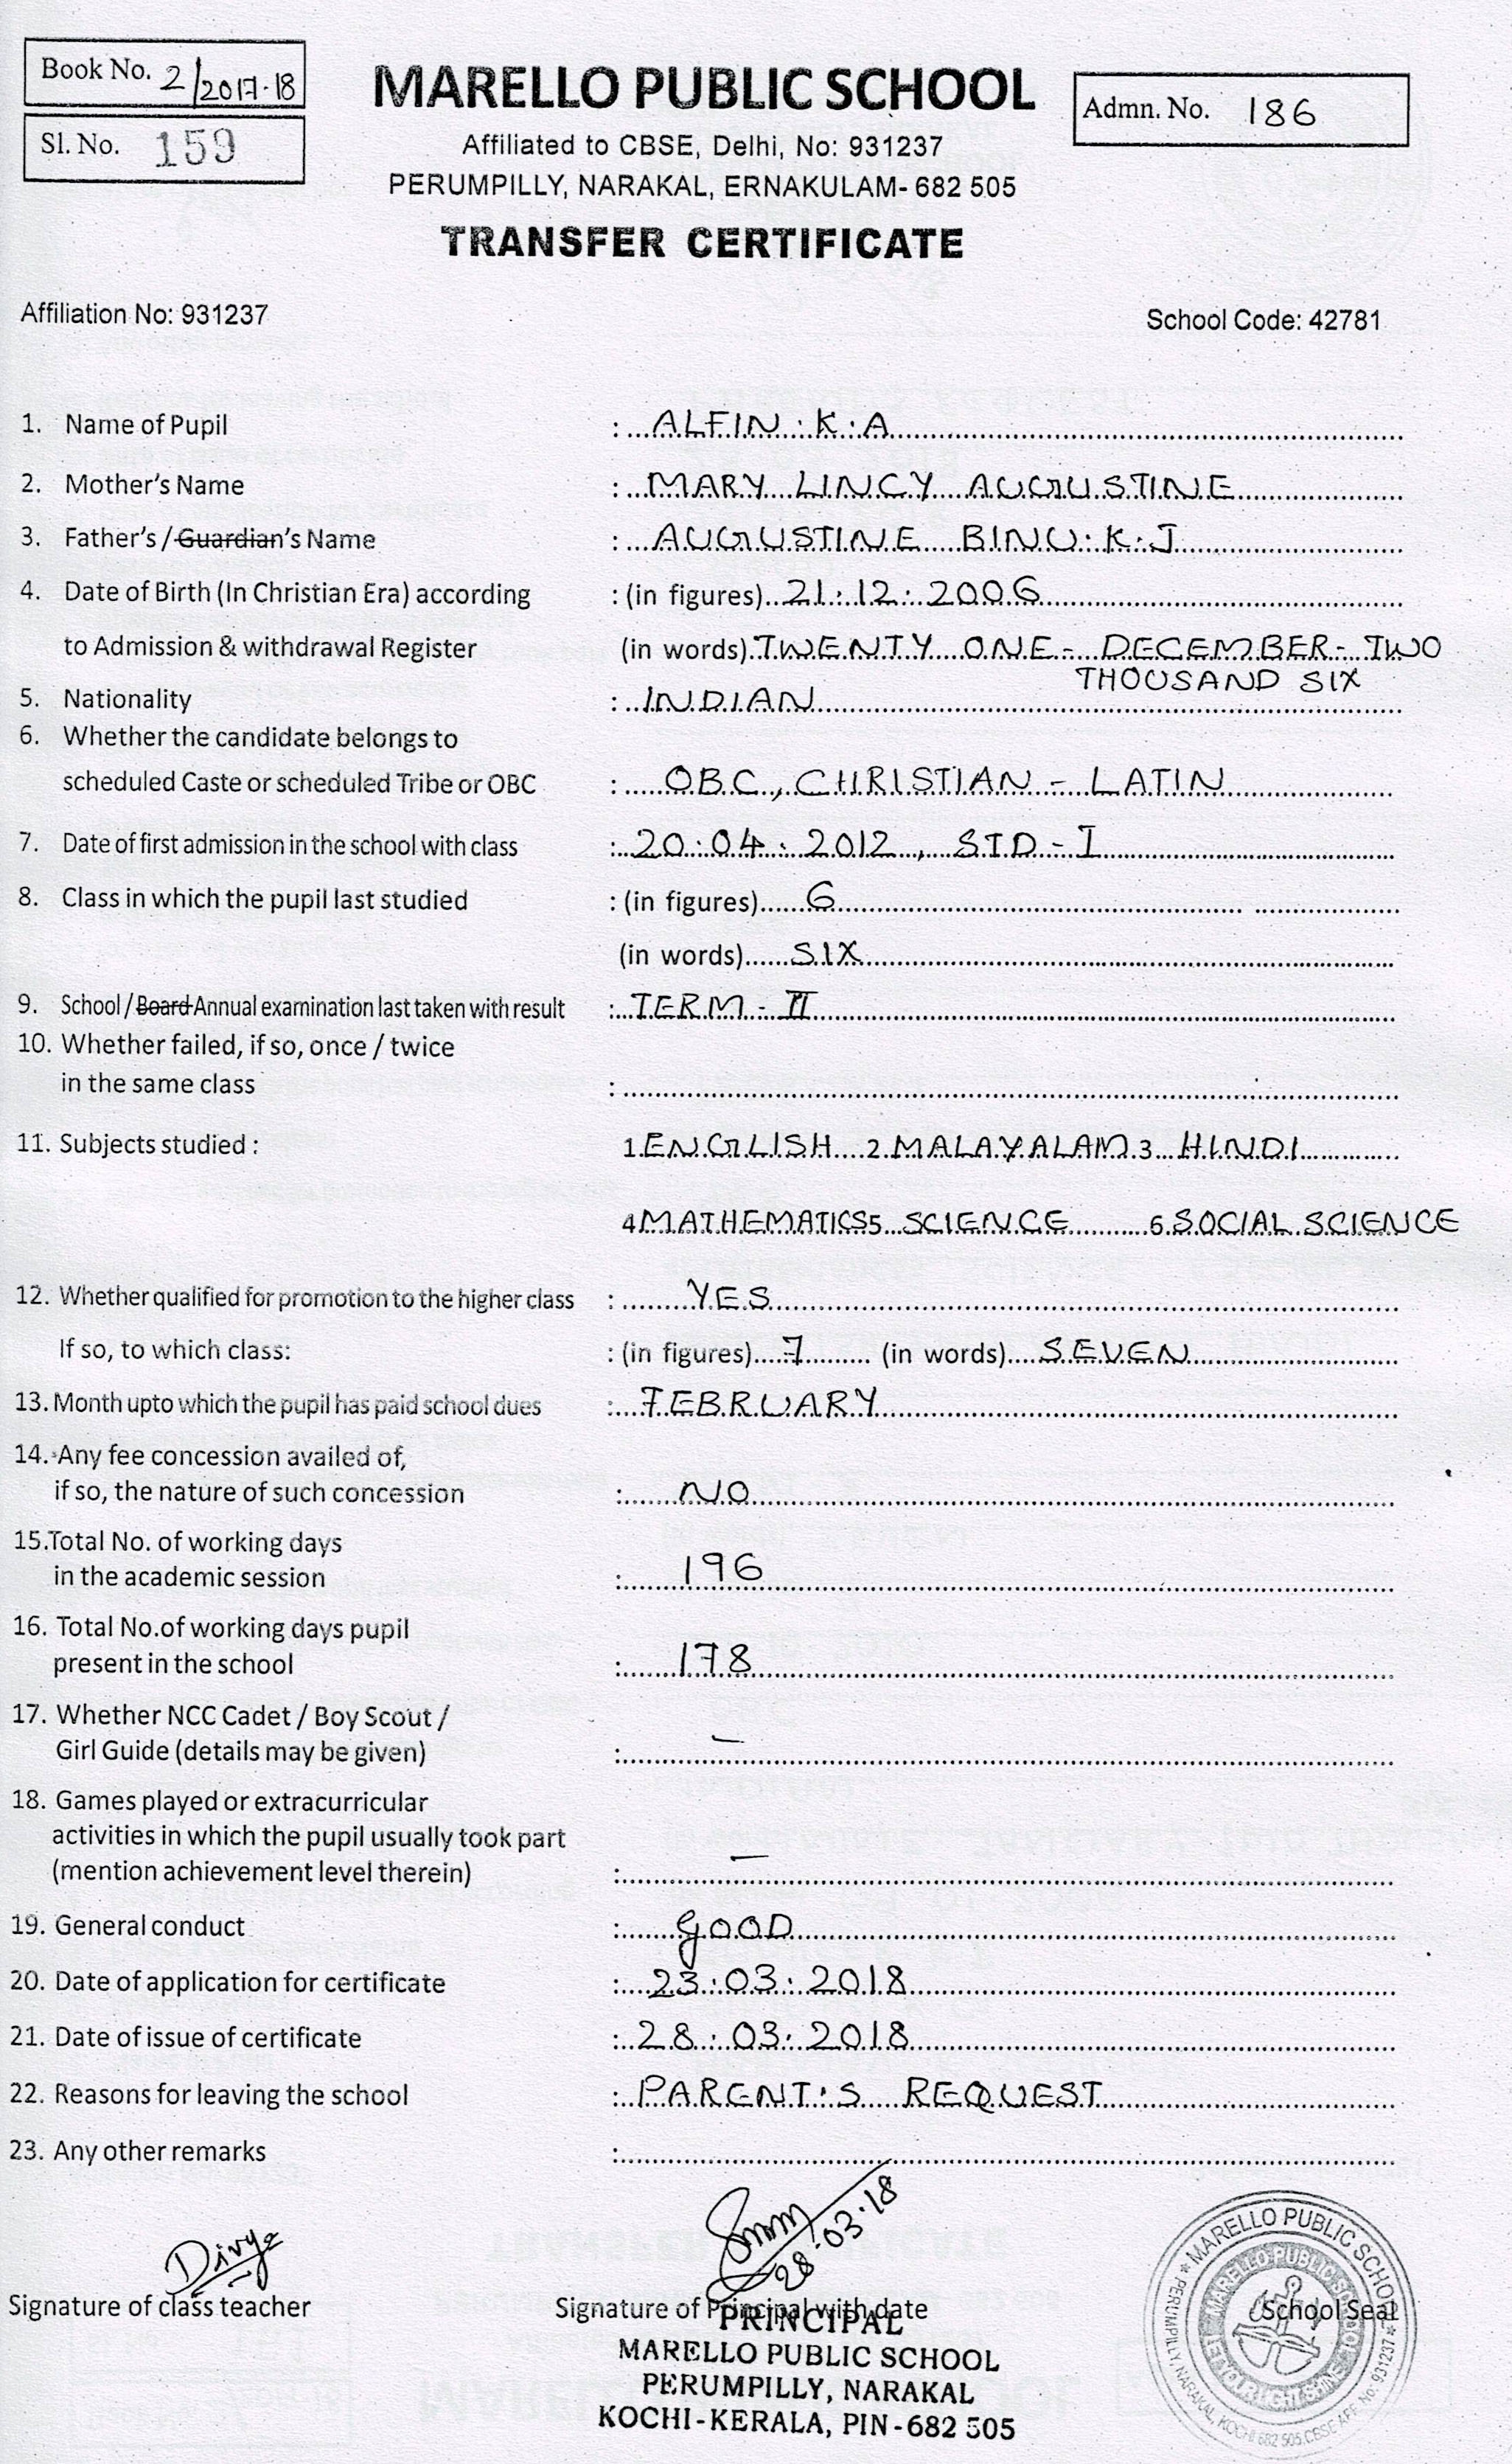 Book No. 2/2017-18
Sl. No. 159
MARELLO PUBLIC SCHOOL
Affiliated to CBSE, Delhi, No: 931237
PERUMPILLY, NARAKAL, ERNAKULAM- 682 505
TRANSFER CERTIFICATE
Admn. No. 186
Affiliation No: 931237 School Code: 42781
1. Name of Pupil : ALFIN . K . A
2. Mother's Name : MARY LINCY AUGUSTINE
3. Father's / Guardian's Name : AUGUSTINE BINU . K . J
4. Date of Birth (In Christian Era) according : (in figures) 21 . 12 . 2006
to Admission & withdrawal Register (in words) TWENTY ONE - DECEMBER - TWO
THOUSAND SIX
5. Nationality : INDIAN
6. Whether the candidate belongs to
scheduled Caste or scheduled Tribe or OBC : OBC, CHRISTIAN - LATIN
7. Date of first admission in the school with class : 20 . 04 . 2012 , STD - I
8. Class in which the pupil last studied : (in figures) 6
(in words) SIX
9. School / Board Annual examination last taken with result : TERM - II
10. Whether failed, if so, once / twice
in the same class :
11. Subjects studied : 1. ENGLISH 2. MALAYALAM 3 HINDI
4 MATHEMATICS 5 SCIENCE 6. SOCIAL SCIENCE
12. Whether qualified for promotion to the higher class : YES
If so, to which class: : (in figures) 7 (in words) SEVEN
13. Month upto which the pupil has paid school dues : FEBRUARY
14. Any fee concession availed of,
if so, the nature of such concession : NO
15.Total No. of working days
in the academic session : 196
16. Total No.of working days pupil
present in the school : 178
17. Whether NCC Cadet / Boy Scout /
Girl Guide (details may be given) : —
18. Games played or extracurricular
activities in which the pupil usually took part
(mention achievement level therein) : —
19. General conduct : GOOD
20. Date of application for certificate : 23 . 03 . 2018
21. Date of issue of certificate : 28 . 03 . 2018
22. Reasons for leaving the school : PARENT'S REQUEST
23. Any other remarks :
28.03.18
Divya
Signature of class teacher Signature of Principal with date School Seal
PRINCIPAL
MARELLO PUBLIC SCHOOL
PERUMPILLY, NARAKAL
KOCHI-KERALA, PIN-682 505
MARELLO PUBLIC SCHOOL
PERUMPILLY, NARAKAL, KOCHI 682 505. CBSE AFF. No. 931237
MARELLO PUBLIC SCHOOL
LET YOUR LIGHT SHINE